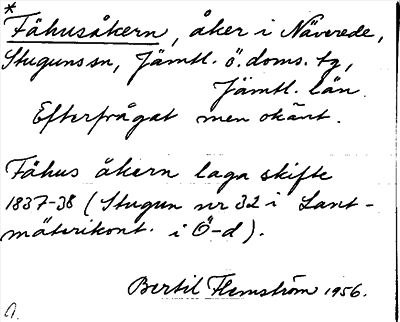 *
Fähusåkern, åker i Näverede,
Stuguns sn, Jämtl. ö. doms. tg,
Jämtl. län.
Efterfrågat men okänt.
Fähus åkern laga skifte
1837-38 (Stugun nr 32 i Lant-
mäterikont. i Ö-d).
Bertil Flemström 1956.